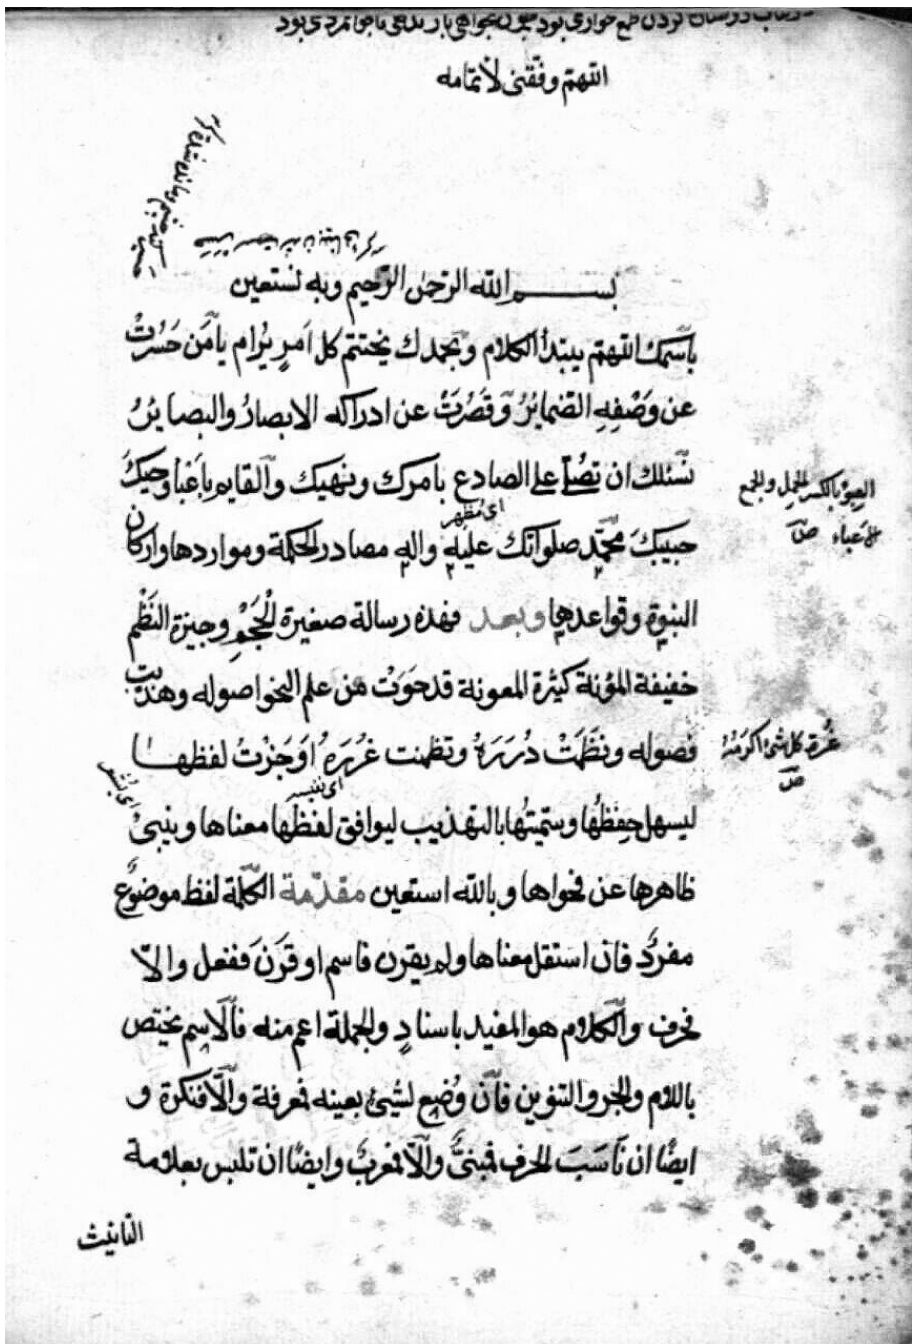 اللهم وفقنى لأتمامه
بسم الله الرحمن الرحيم وبه نستعين
باسمك اللهم يبتدأ الكلام وبحمدك يختتم كل امرٍ يرام يا من حَسُرَتْ
عن وَصْفِهِ الضمائرُ وقَصُرَتْ عن ادراكه الابصارُ والبصايرُ
نسئلك ان تُصَلّىَ على الصادع بامرك ونهيك والقايم باَعْبأِ وحيكَ
العِبؤ بالكسر الحِمل والجمع
الاَعباء ص
اى مُظهر
حبيبكَ محمّدٍ صلواتك عليه واله مصادر الحكمة ومواردها واركان
النبوة وقواعدها وبعد فهذه رسالة صغيرة الْحَجْمِ وجيزة النَظْمِ
خفيفة المؤنة كثيرة المعونة قد حَوَتْ من علم النحو اصوله وهذبت
فصوله ونظَمَتْ دُرَرَهُ وتضمنت غُرَرَهُ اوجَزْتُ لفظها
غُرة كل شئ اكرمُهُ
ص
ليسهل حِفظُها وسمّيتُها بالتهذيب ليوافق لفظُها معناها وينبئُ
ظاهرها عن فحواها وبالله استعين مقدّمة الكلمة لفظ موضوع
مفردٌ فان استقل معناها ولم يقرن فاسم او قَرَنَ ففعل والاّ
فحرف والكلام هو المفيد باسنادٍ والجملة اعم منه فالاسم يختص
باللام والجر والتنوين فان وُضِع لشئٍ بعينه فمعرفة والاّ فنكرة و
ايضًا ان نَاسَبَ الحرف فمبنىٌّ والاّ فمعربٌ وايضًا ان تلبس بعلامة
التانيث